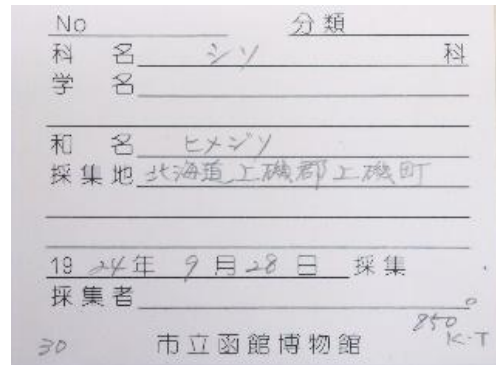 No 分類
科 名 シソ 科
学 名
和 名 ヒメジソ
採集地 北海道上磯郡上磯町
19 24年 9月28日 採集
採集者
850
K-T
30 市立函館博物館